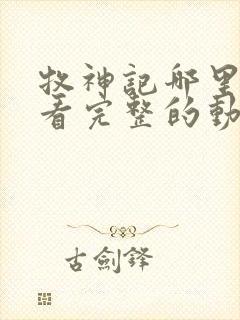 牧神記哪里
看完整的動
古劍鋒